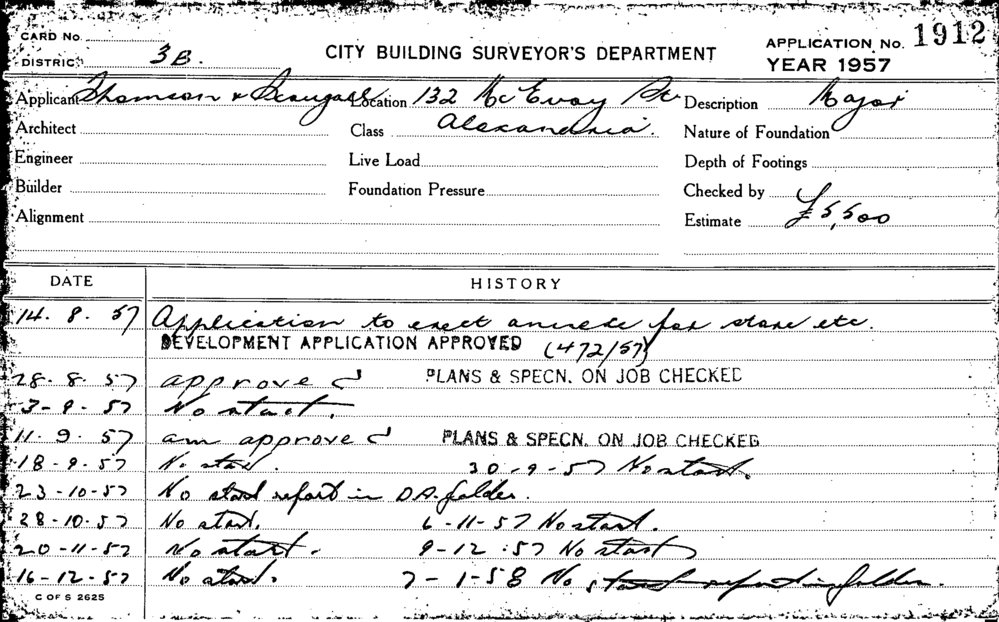 CARD No.
DISTRICT 3B.
CITY BUILDING SURVEYOR'S DEPARTMENT
APPLICATION No. 1912
YEAR 1957
Applicant Thomson & Location 132 McEvoy St Description Major
Architect Class Alexandria. Nature of Foundation
Engineer Live Load Depth of Footings
Builder Foundation Pressure Checked by
Alignment Estimate £5,500
DATE HISTORY
14. 8. 57 Application to erect annexe for store etc.
DEVELOPMENT APPLICATION APPROVED (472/57)
28. 8. 57 approved PLANS & SPECN. ON JOB CHECKED
3-9-57 No start.
11. 9. 57 am approved PLANS & SPECN. ON JOB CHECKED
18-9-57 No start. 30-9-57 No start.
23-10-57 No start report in D.A. folder.
28-10-57 No start. 6-11-57 No start.
20-11-57 No start. 9-12-57 No start
16-12-57 No start. 7-1-58 No start report in folder.
C OF S 2625